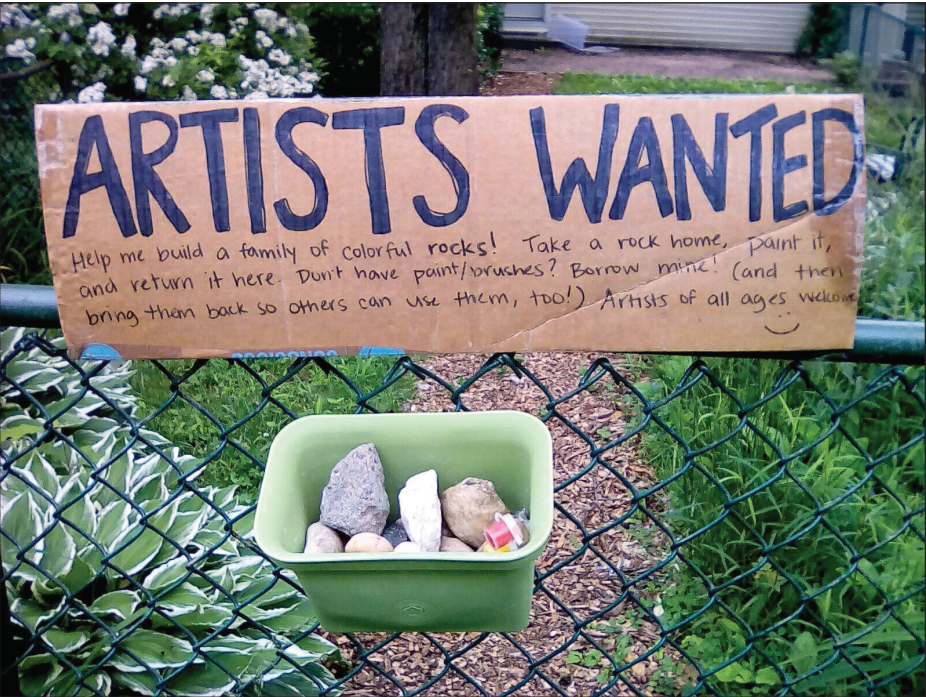 ARTISTS WANTED
Help me build a family of colorful rocks! Take a rock home, paint it,
and return it here. Don't have paint/brushes? Borrow mine! (and then
bring them back so others can use them, too!) Artists of all ages welcome